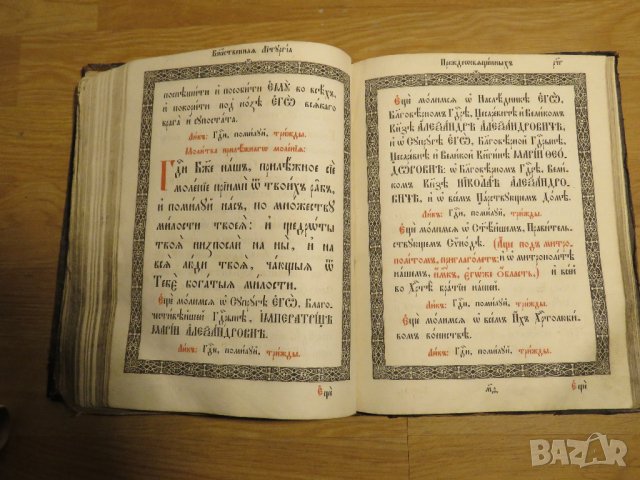 Бжⷭ҇твеннаѧ лїтꙋргїа
поспѣшити и пособити є҆мꙋ̀ во всѣхъ,
и покорити под нозѣ є҆гѡ̀ всѧкаго
врага и сꙋпостата.
Ликъ: Гдⷭ҇и, помилꙋй, трижды.
Молитва прилѣжнагѡ моленїѧ:
Гдⷭ҇и Бже нашъ, прилѣжное сїе
моленїе прїими ѿ твоихъ рабъ,
и помилꙋй насъ, по множествꙋ
милости твоеѧ: и щедрѡты
твоѧ низпосли на ны, и на
всѧ люди твоѧ, чающыѧ ѿ
Тебе богатыѧ милости.
Єще молимсѧ ѡ Сꙋпрꙋгѣ ЄГѠ, Благо-
честивѣйшей Гдⷭ҇рынѣ, ИМПЕРАТРИЦѢ
МАРІИ АЛЕѮАНДРОВНѢ.
Ликъ: Гдⷭ҇и, помилꙋй, трижды.
Єще
Преждеѡсвѧщенныхъ
рчг
Єще молимсѧ ѡ Наслѣдникѣ ЄГѠ,
Благовѣрномъ Гдⷭ҇рѣ, Цесаревичѣ и Великомъ
Кнѧзѣ АЛЕѮАНДРѢ АЛЕѮАНДРОВИЧѢ,
и ѡ Сꙋпрꙋгѣ ЄГѠ, Благовѣрной Гдⷭ҇рынѣ,
Цесаревнѣ и Великой Кнѧгинѣ МАРІИ ѲЕО-
ДѠРОВНѢ: ѡ Благовѣрномъ Гдⷭ҇рѣ, Великомъ
Кнѧзѣ НІКОЛАѢ АЛЕѮАНДРО-
ВИЧѢ, и ѡ всемъ Царствꙋющемъ Домѣ.
Ликъ: Гдⷭ҇и, помилꙋй, трижды.
Єще молимсѧ ѡ Ст҃ѣйшемъ, Правитель-
ствꙋющемъ Сѵнодѣ. (Аще подъ митро-
политомъ, приглаголетъ: и ѡ митрополитѣ
нашемъ, имⷬ҇къ, єгѡже область.) и всей
во Хрⷭ҇тѣ братїи нашей.
Ликъ: Гдⷭ҇и, помилꙋй, трижды.
Єще молимсѧ ѡ всемъ Ихъ Хрⷭ҇толюби-
вомъ воинствѣ.
Ликъ: Гдⷭ҇и, помилꙋй, трижды.
Єще
BAZAR